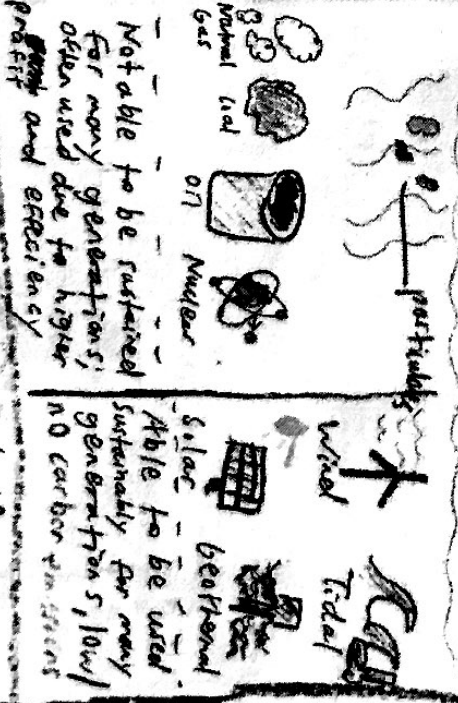 particulates
Natural
Gas
Coal
Oil
Nuclear
Not able to be sustained
for many generations,
often used due to higher
profit and efeciency
Wind
Tidal
Solar
Geothermal
Able to be used
sustainably for many
generations, low/
no carbon emissions